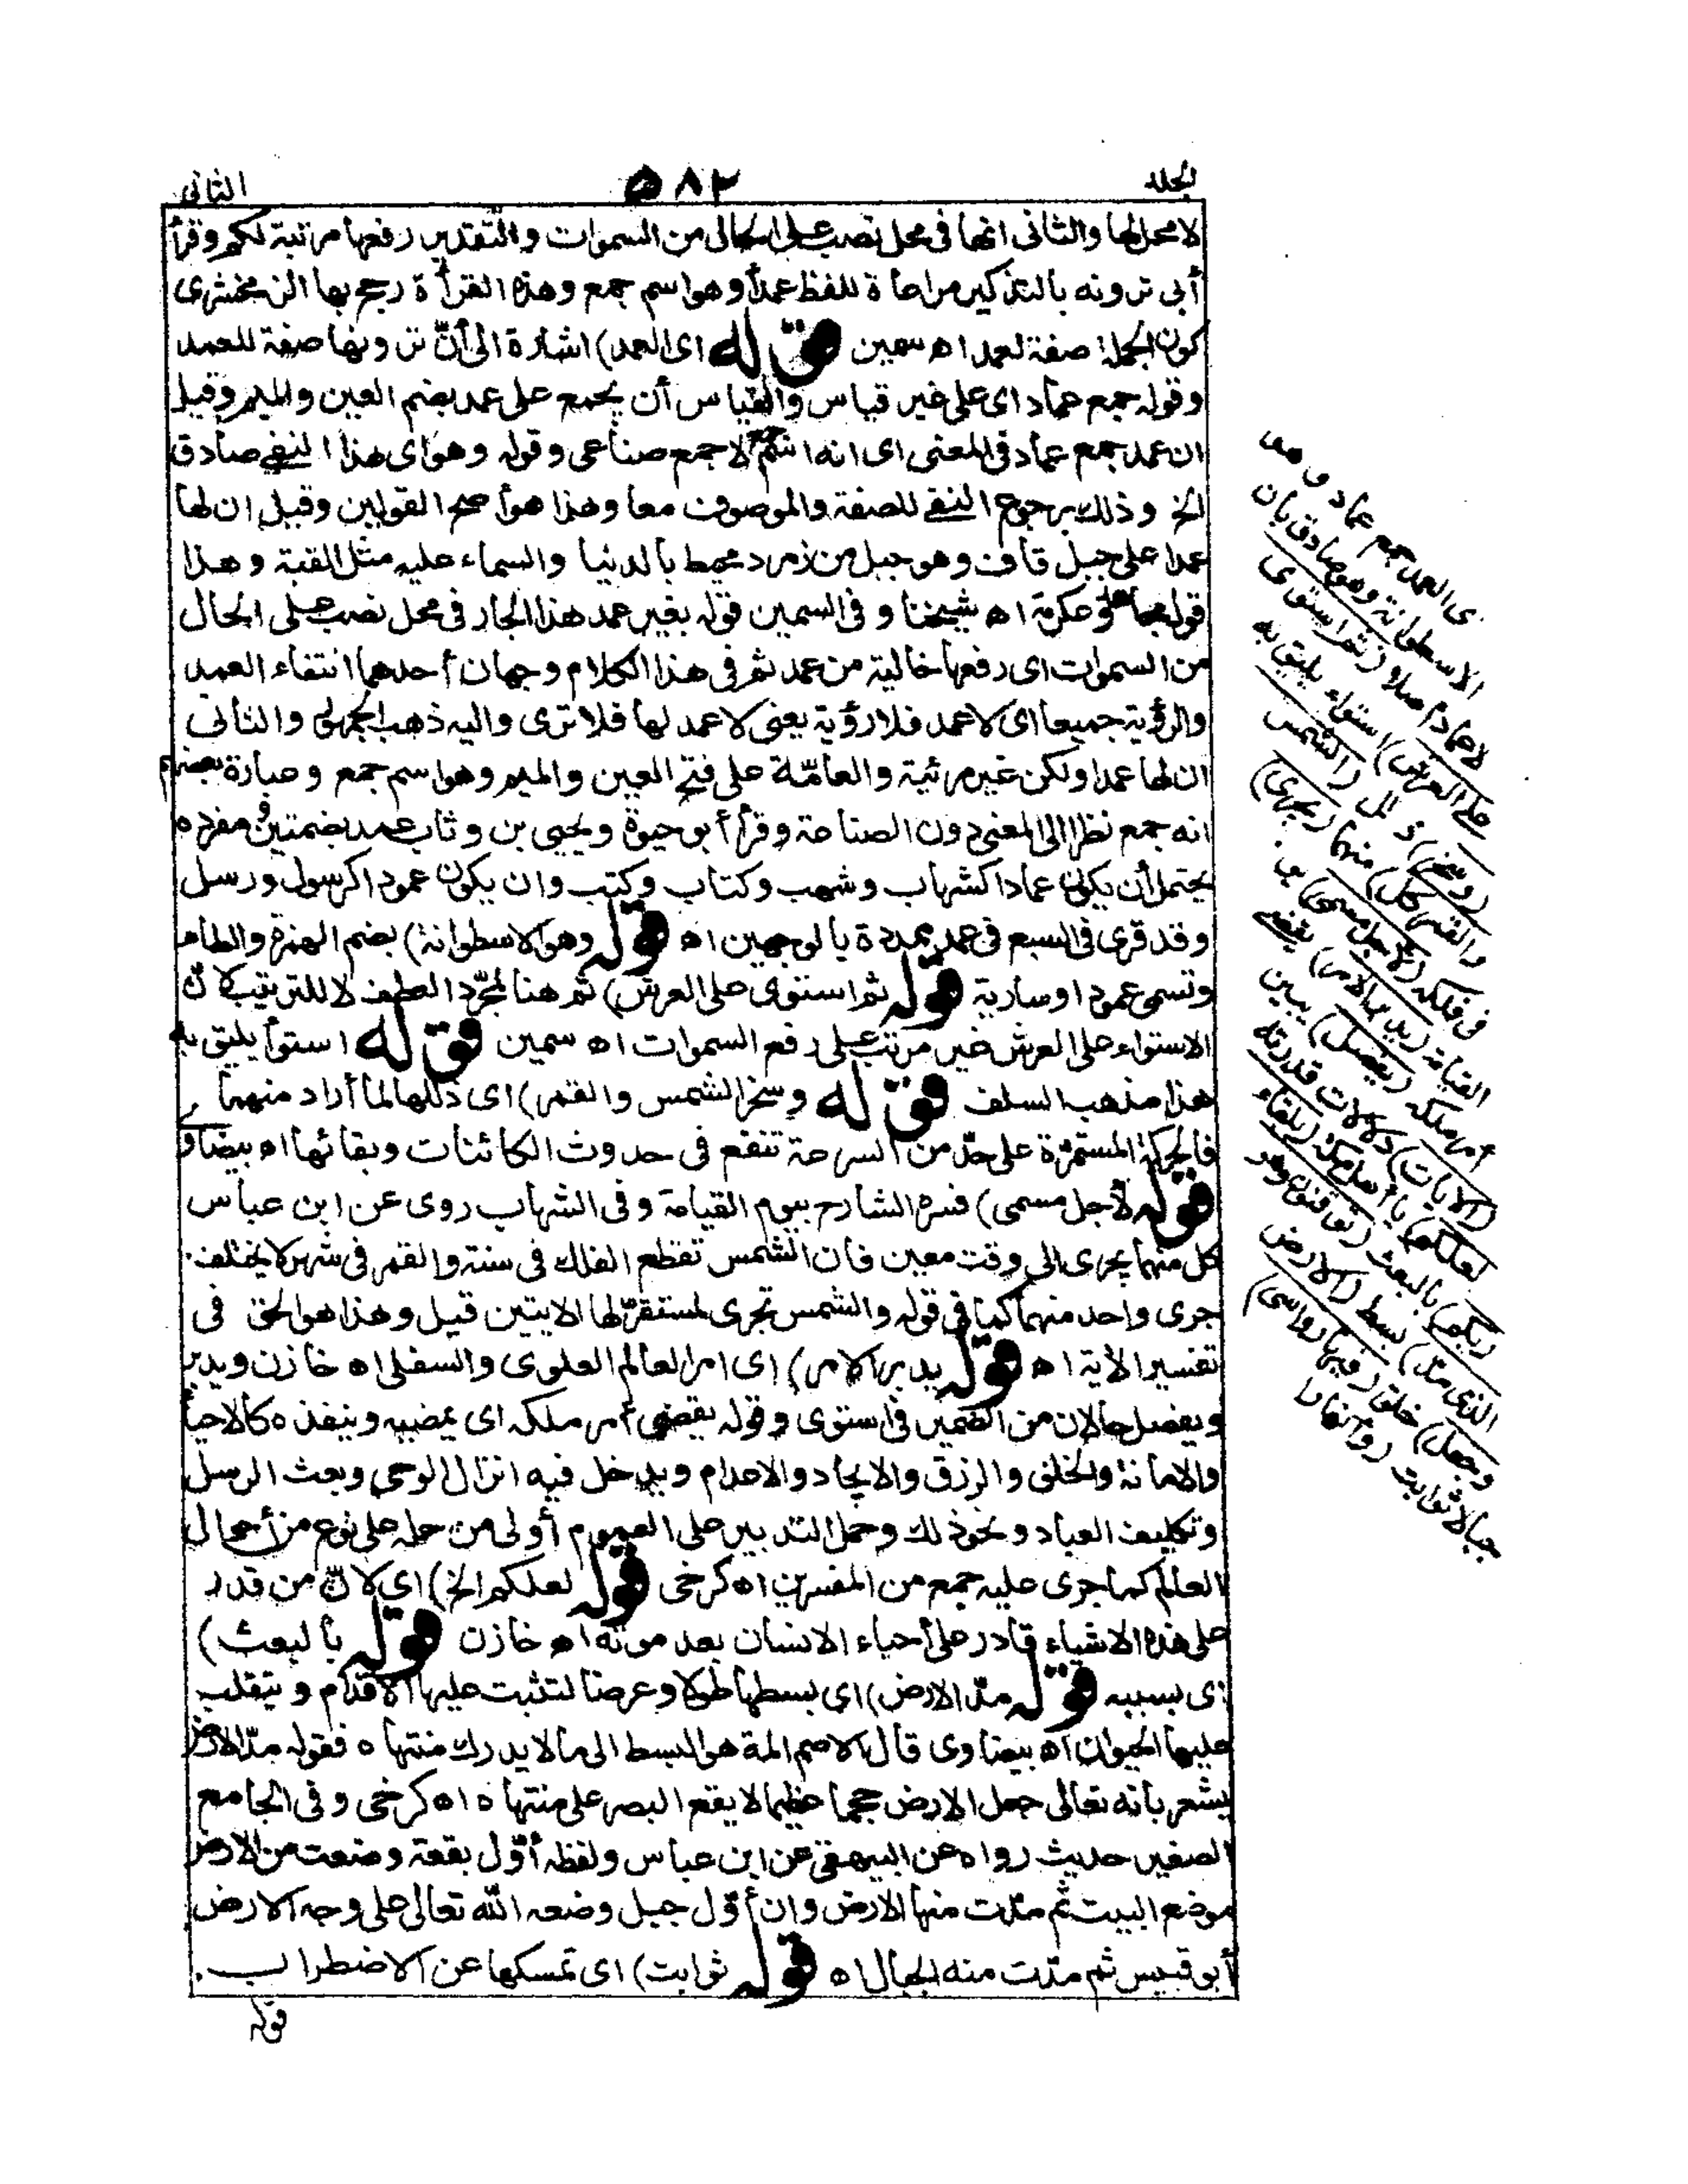 الجلد
٥٨٢
الثانى
لا محل لها والثانى انها فى محل نصب على الحال من السموات والتقدير رفعها مرتبة لكم وقرأ
أبى ترونه بالتذكير مراعاة للفظ عمد أو هو اسم جمع وهذه القرأة رجح بها الزمخشرى
كون الجملة صفة لعمد اه سمين قوله اى العمد) اشارة الى أنّ ترونها صفة للعمد
وقوله جمع عماد اى على غير قياس والقياس أن يجمع على عمد بضم العين والميم وقيل
ان عمد جمع عماد فى المعنى اى انه اسم جمع لا جمع صناعى وقوله وهو اى هذا النفى صادق
الخ وذلك برجوع النفى للصفة والموصوف معا وهذا هو أصح القولين وقيل ان لها
عمدا على جبل قاف وهو جبل من زمرد محيط بالدنيا والسماء عليه مثل القبة وهذا
قول مجاهد وعكرمة اه شيخنا وفى السمين قوله بغير عمد هذا الجار فى محل نصب على الحال
من السموات اى رفعها خالية من عمد ثم فى هذا الكلام وجهان أحدهما انتفاء العمد
والرؤية جميعا اى لا عمد فلا رؤية يعنى لا عمد لها فلا ترى واليه ذهب الجمهور والثانى
ان لها عمدا ولكن غير مرئية والعامّة على فتح العين والميم وهو اسم جمع وعبارة بعضهم
انه جمع نظرا الى المعنى دون الصناعة وقرأ أبو حيوة ويحيى بن وثاب عمد بضمتين ومفرده
يحتمل أن يكون عمادا كشهاب وشهب وكتاب وكتب وان يكون عمودا كرسول ورسل
وقد قرى فى السبع فى عمد ممددة بالوجهين اه قوله وهو الاسطوانة) بضم الهمزة والطاء
وتسمى عمودا وسارية قوله ثم استوى على العرش) ثم هنا لمجرّد العطف لا للترتيب لانّ
الاستواء على العرش غير مرتب على رفع السموات اه سمين قوله استوأ يليق به
هذا مذهب السلف قوله وسخر الشمس والقمر) اى ذللهما لما أراد منهما
فالحركة المستمرّة على حدّ من السرعة تنفع فى حدوث الكائنات وبقائها اه بيضاوى
قوله لأجل مسمى) فسره الشارح بيوم القيامة وفى الشهاب روى عن ابن عباس
كل منهما يجرى الى وقت معين فان الشمس تقطع الفلك فى سنة والقمر فى شهر لا يختلف
جرى واحد منهما كما فى قوله والشمس تجرى لمستقرّ لها الايتين قيل وهذا هو الحق فى
تفسير الأية اه قوله يدبر الامر) اى امر العالم العلوى والسفلى اه خازن ويدبر
ويفصل حالان من الضمير فى استوى وقوله يقضى أمر ملكه اى يمضيه وينفذه كالاحيأ
والاماتة والخلق والرزق والايجاد والاعدام ويدخل فيه انزال الوحى وبعث الرسل
وتكليف العباد ونحو ذلك وحمل التدبير على العموم أولى من حمله على نوع من أحوال
العالم كما جرى عليه جمع من المفسرين اه كرخى قوله لعلكم الخ) اى لانّ من قدر
على هذه الاشياء قادر على أحياء الانسان بعد موته اه خازن قوله بالبعث)
اى بسببه قوله مدّ الارض) اى بسطها طولا وعرضا لتثبت عليها الاقدام ويتقلب
عليها الحيوان اه بيضاوى قال الاصم المد هو البسط الى ما لا يدرك منتهاه فقوله مدّ الارض
يشعر بانه تعالى جعل الارض حجما عظيما لا يقع البصر على منتهاه اه كرخى وفى الجامع
الصغير حديث رواه عن البيهقى عن ابن عباس ولفظه أوّل بقعة وضعت من الارض
موضع البيت ثم مدّت منها الارض وان أوّل جبل وضعه الله تعالى على وجه الارض
أبو قبيس ثم مدّت منه الجبال اه قوله ثوابت) اى تمسكها عن الاضطراب
قوله
ى العمد جمع عماد وهى
الاسطوانة وهو صادق بان
لا عماد أصلا (ثم استوى
على العرش) استواء يليق به
(وسخر) ذلل (الشمس
والقمر كل) منهما (يجرى)
فى فلكه (لاجل مسمى) يوم
القيامة (يدبر الامر) يقضى
أمر ملكه (يفصل) يبين
(الايات) دلالات قدرته
لعلكم) يا أهل مكة (بلقاء
ربكم) بالبعث (توقنون وهو
الذى مدّ) بسط (الارض
وجعل) خلق (فيها رواسى)
جبالا ثوابت (وأنهارا